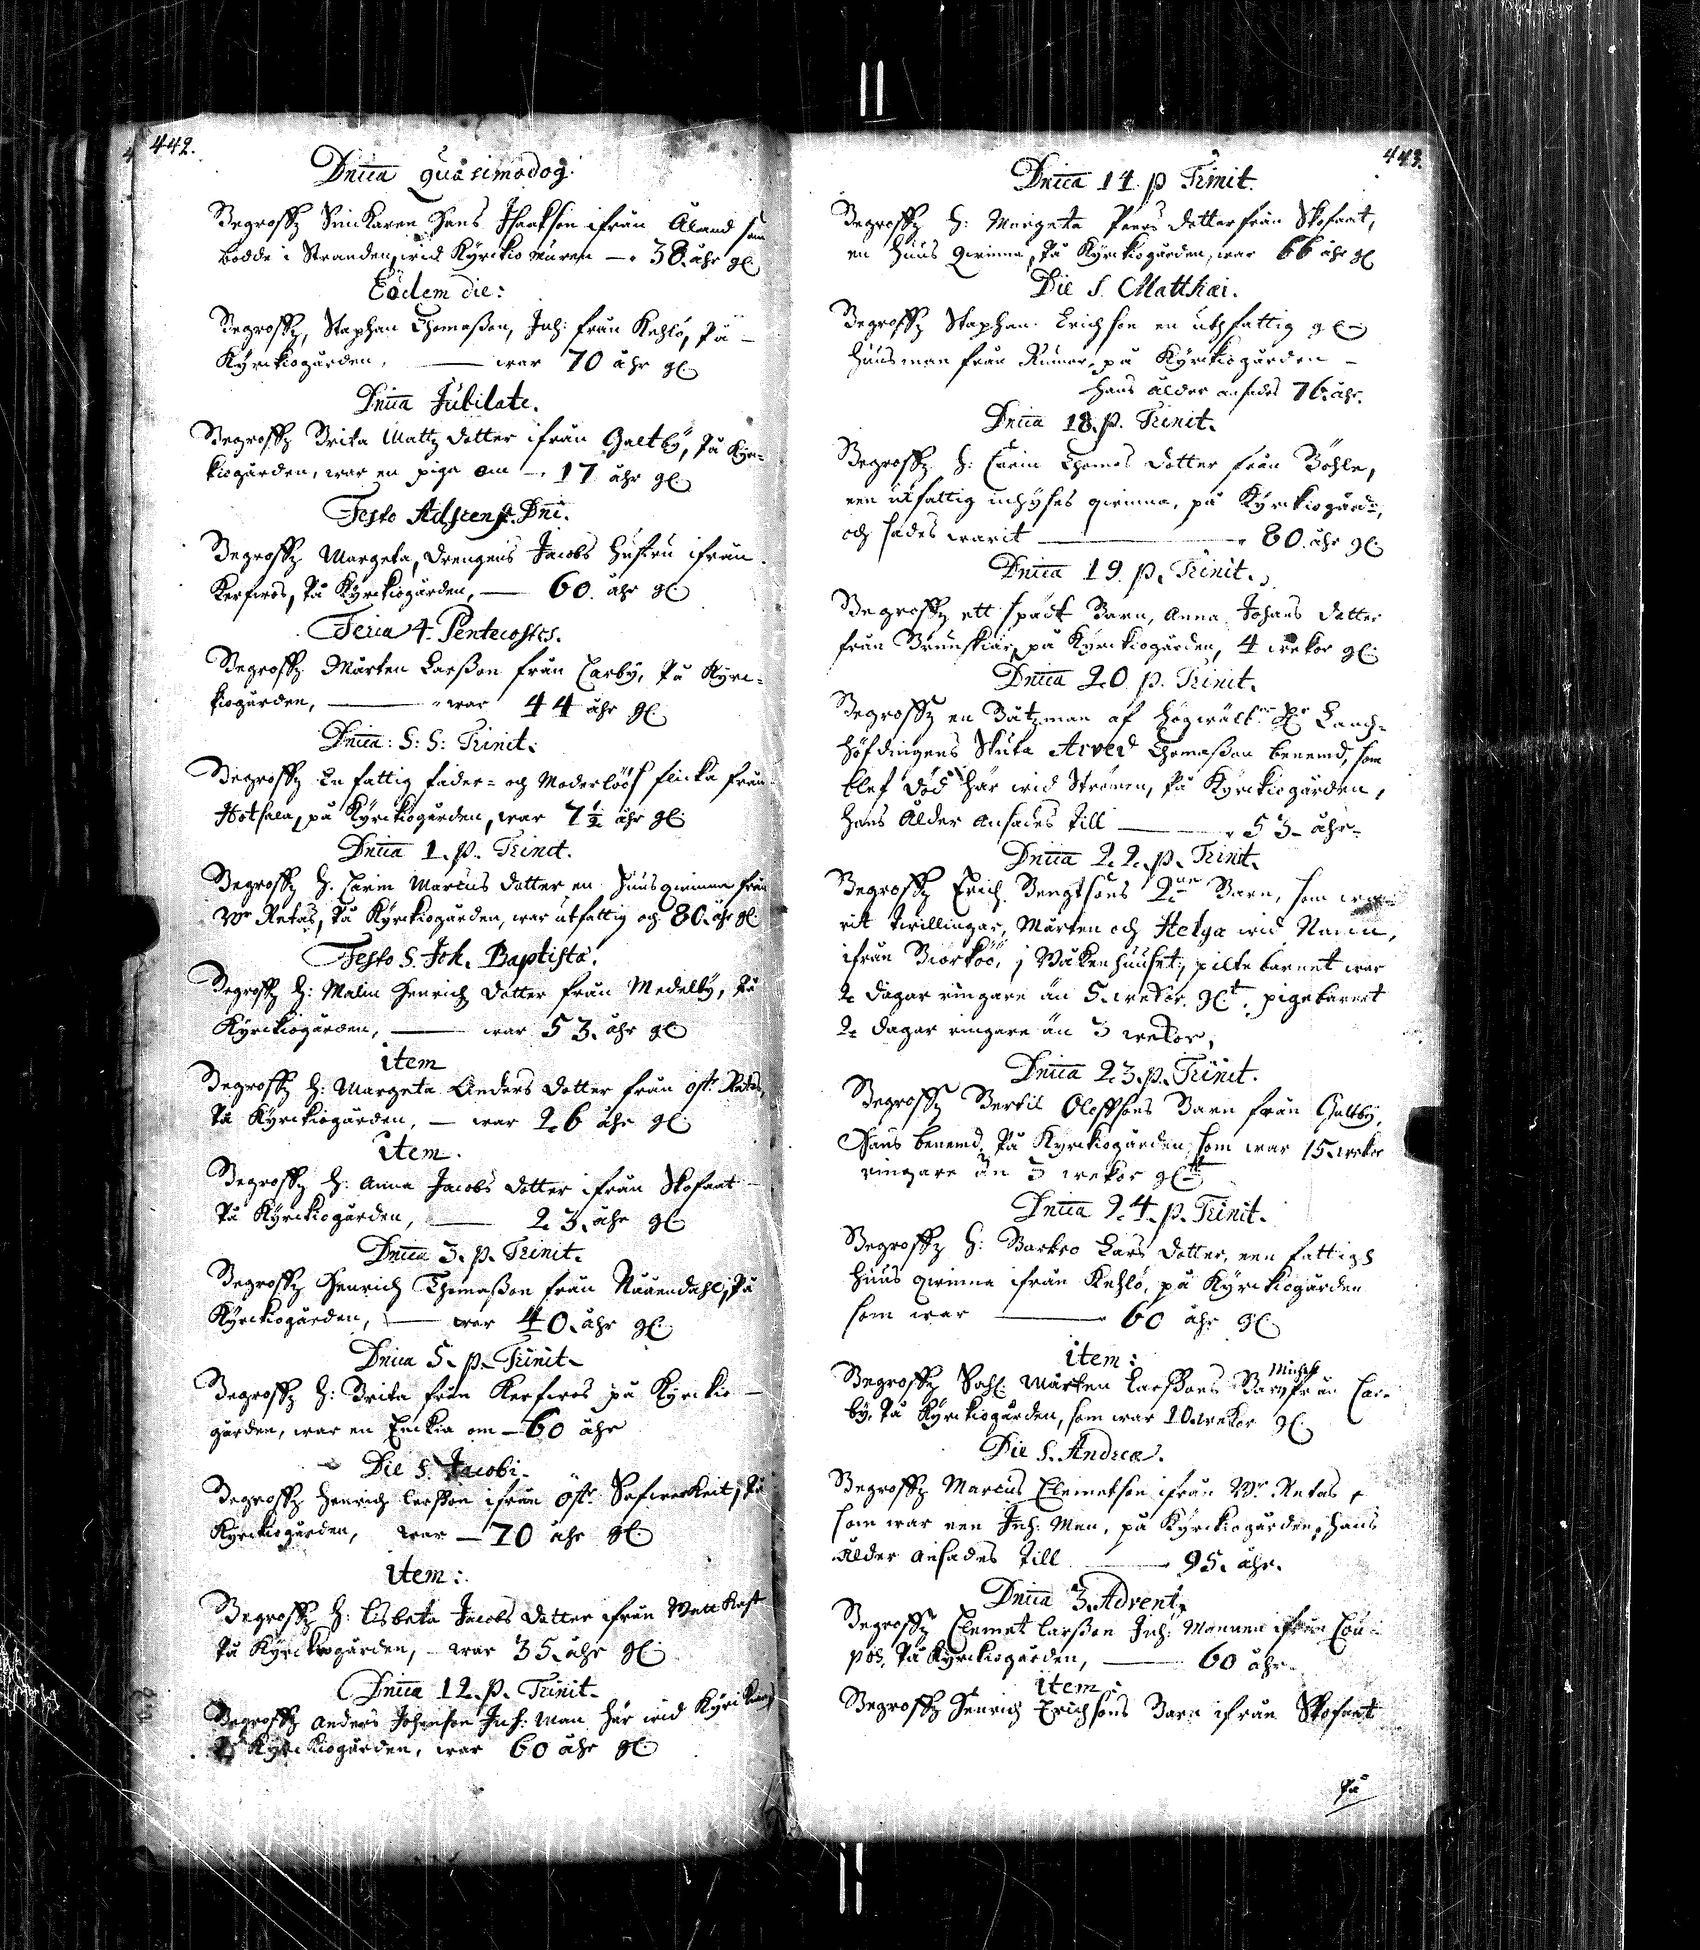 442.
Dnica Quasimodog.
Begroffz Snickaren Hans Isaakson ifrån Åland som
bodde i Stranden, wid Kyrckio muren —. 38. åhr gl.
Eödem die:
Begroffz, Staphan Thomaßon, Inh: från Kehlö, På —
Kyrckiogården, —— war 70 åhr gl.
Dnica Jubilate.
Begroffz Brita Mattz dotter ifrån Galtbÿ, På Kyr=
kiogården, war en piga om —. 17 åhr gl.
Festo Adscens. Dni.
Begroffz Margeta, Drengens Jacobs Hustru ifrån
Kerfwos, På Kyrckiogården, —— 60. åhr gl.
Feria 4. Pentecostes.
Begroffz Mårten Larßon från Carby, På Kyrc=
kiogården, —— war 44 åhr gl.
Dnica: S: S: Trinit.
Begroffz En fattig fader= och Moderlööß flicka från
på Kyrckiogården, war 7½ åhr gl.
Dnica 1. p. Trinit.
Begroffz H. Carin Marcus dotter en huusqwinna från
Wr Retas, På Kyrckiogården, war utfattig och 80. åhr gl.
Festo S. Joh. Baptistæ.
Begroffz H: Malin Henrich dotter från Medelby, På
Kyrckiogården, —— war 53. åhr gl.
item
Begroffz H: Margeta Anders dotter från ost. Retas,
På Kyrckiogården, — war 26 åhr gl.
item.
Begroffz H: Anna Jacobs dotter ifrån Skofant —
På Kyrckiogården, —— 23. åhr gl.
Dnica 3. p. Trinit.
Begroffz Henrich Thomaßon från Nååendahl, På
Kyrckiogården, —— war 40. åhr gl.
Dnica 5. p. Trinit.
Begroffz H: Brita från Kerfwos på Kyrckio —
gården, war en Enckia om — 60 åhr
Die S. Jacobi.
Begroffz Henrich Larßon ifrån öst. På
Kyrckiogården, war — 70 åhr gl.
item:
Begroffz H: Lisbeta Jacobs dotter ifrån
På Kyrckiogården, — war 35. åhr gl.
Dnica 12. p. Trinit.
Begroffz Anders Johanson Inh: Man här wid
På Kyrckiogården, war 60 åhr gl.
443.
Dnica 14. p Trinit.
Begroffz H: Margeta Peers dotter från Skofant,
en huus qwinna, På Kyrckiogården, war 66 åhr gl
Die S. Matthæi.
Begroffz Staphan Erichson en utfattig gl.
huusman från Rumar, på Kyrckiogården —
hans ålder ansades 76. åhr.
Dnica 18. p. Trinit.
Begroffz H: Carin Thomas dotter från Böhle,
een utfattig inhyses qwinna, på Kyrckiogårdn,
och sades warit —— 80. åhr gl.
Dnica 19. p. Trinit.
Begroffz ett spädt Barn, Anna Johans dotter
från Brunskiär, på Kyrckiogården, 4 wekor gl.
Dnica 20. p. Trinit.
Begroffz en Båtzman af Högwälb. Hr Land=
höfdingens Skuta Arved Thomaßon benemd, som
blef död här wid Strömen, På Kyrckiogården,
hans Ålder ansades till —— 53. åhr.
Dnica 22. p. Trinit.
Begroffz Erich Bengtsons 2ne Barn, som wa=
rit twillingar, Mårten och Helga wid Namn,
ifrån Biorköö, i Wåkenhuuset, piltebarnet war
2. dagar ringare än 5. wekor glt. pigebarnet
2. dagar ringare än 3 wekor,
Dnica 23. p. Trinit.
Begroffz Bertil Oloffsons Barn från Galtbÿ,
Hans benemd, På Kyrckiogården som war 15. wekor
ringare än 3 wekor gl.
Dnica 24. p. Trinit.
Begroffz H: Barbro Lars dotter, een fattigh
huus qwinna ifrån Kehlö, på Kyrckiogården
som war —— 60 åhr gl.
item:
Begroffz Sahl. Mårten Larßons Barn Michell från Car=
by, På Kyrckiogården, som war 10. wekor gl.
Die S. Andreæ.
Begroffz Marcus Clemetson ifrån Wr. Retas,
som war een Inh: Man, på Kyrckiogården, hans
Ålder ansades till —— 95. åhr.
Dnica 3. Advent.
Begroffz Clemet Larßon Inh: Mannen ifrån Cou=
pos, På Kyrckiogården, —— 60 åhr.
item:
Begroffz Henrich Erichsons Barn ifrån Skofant
På